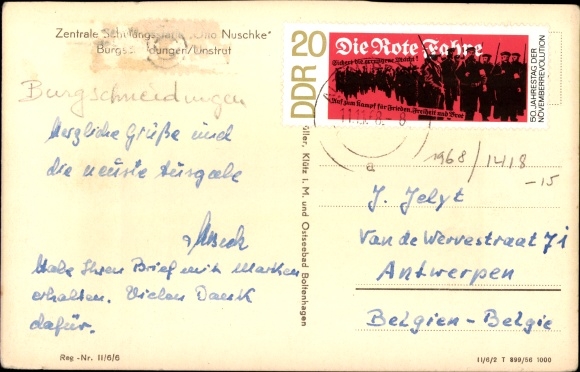 Zentrale Schulungsstätte "Otto Nuschke"
Burgscheidungen/Unstrut
Burgscheidungen
Herzliche Grüße und
die neuste Ausgabe
Habe Ihren Brief mit Marken
erhalten. Vielen Dank
dafür.
Reg.-Nr. II/6/6
20
DDR
Die Rote Fahne
Auf zum Kampf für Frieden, Freiheit und Brot
50. JAHRESTAG DER
NOVEMBERREVOLUTION
a
Klütz i. M. und Ostseebad Boltenhagen
1968/1418
-15
J. Jelyt
Van de Wervestraat 71
Antwerpen
Belgien-Belgie
II/6/2 T 899/56 1000